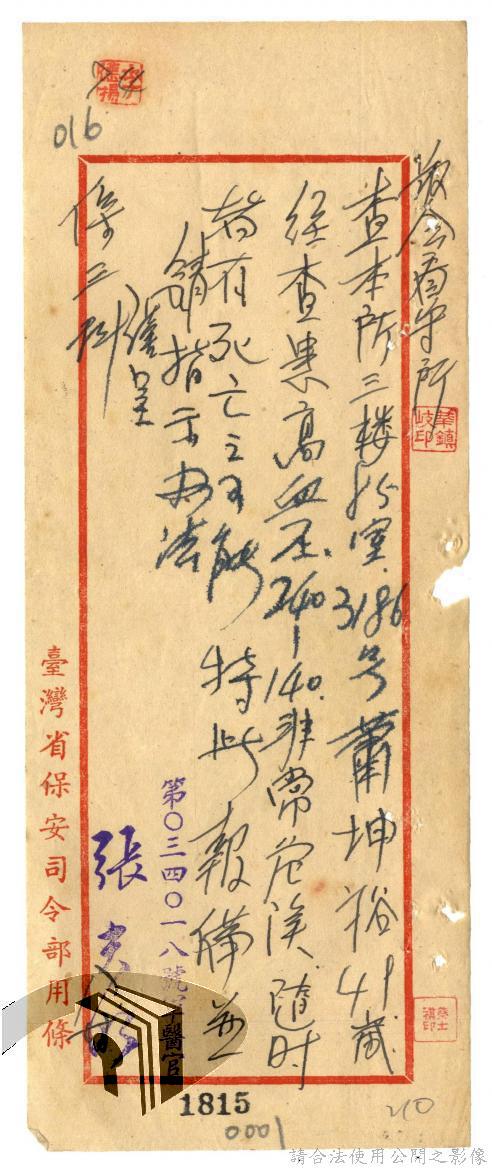 016
查本所三楼85室3186号蕭坤裕49歲
經查患高血压240-140.非常危険随时
皆有死亡之可能特此報備並
請指示办法
謹呈
保三科
第〇三四〇一八號軍醫官
張
臺灣省保安司令部用條
1815
0001
210
請合法使用公開之影像